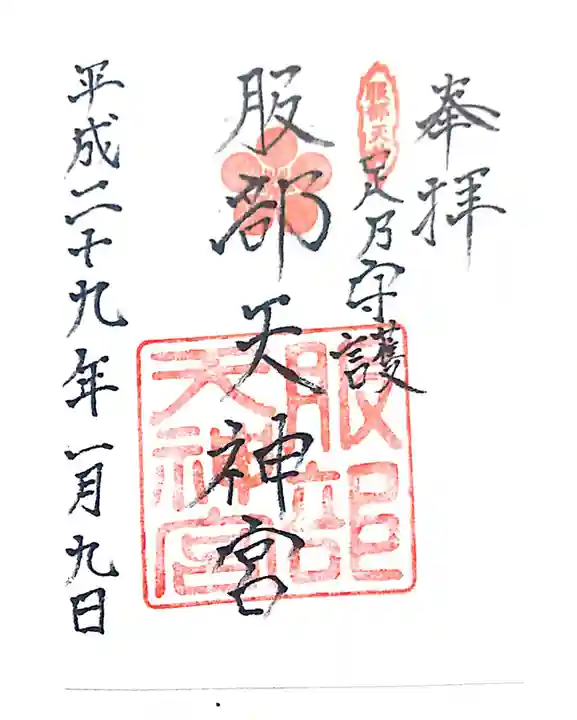 奉拝
服部天
足乃守護
服部天神宮
服部
天神宮
平成二十九年一月九日